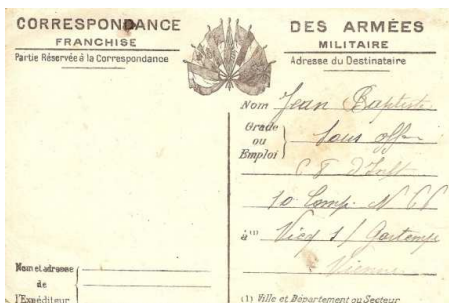 CORRESPONDANCE DES ARMÉES
FRANCHISE MILITAIRE
Partie Réservée à la Correspondance
Adresse du Destinataire
Nom Jean Baptiste
Grade
ou
Emploi
Sous off
10 Comp. N 66
à (1) Vicq s/ Gartempe
Vienne
Nom et adresse
de
l'Expéditeur
(1) Ville et Département ou Secteur